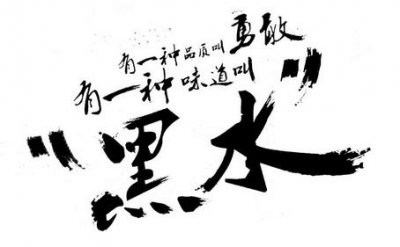 有一种品质叫勇敢
有一种味道叫
"黑水"